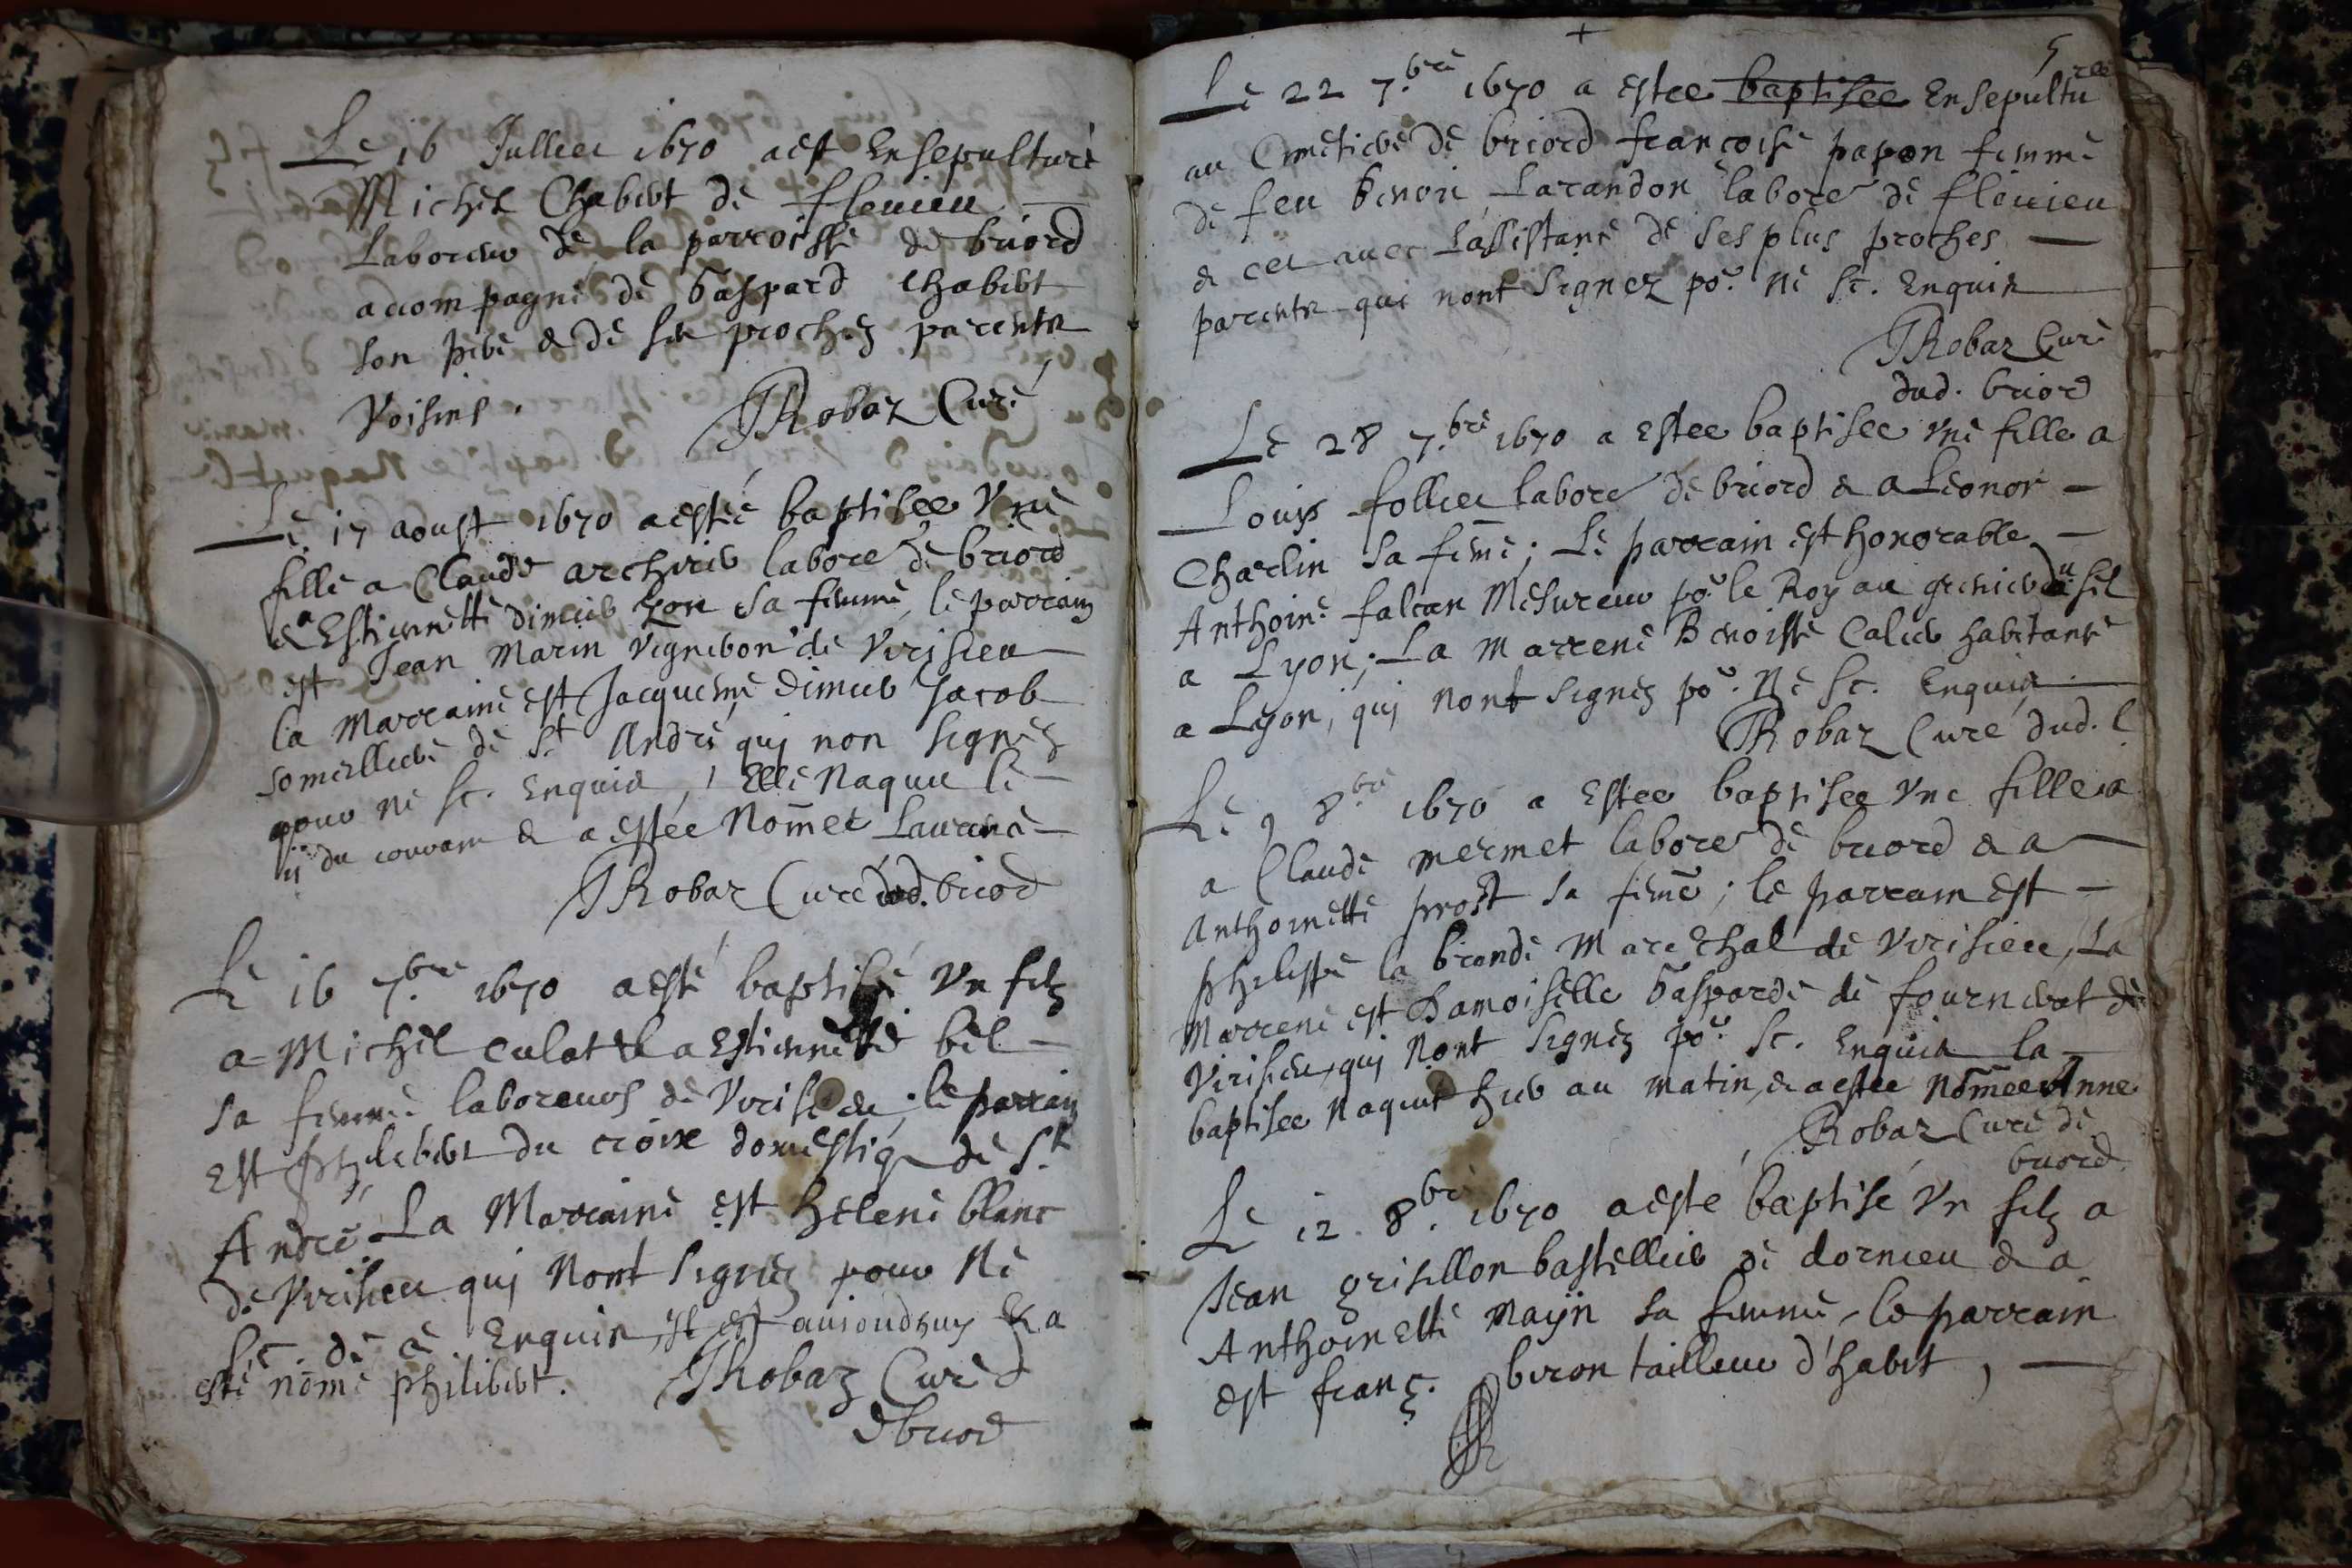 Le 16 Juillet 1670 a est Ensepulturé
Michel Chabert de flevieu
Laboreur de la parroisse de briord
accompagné de Gaspard Chabert
son pere & de ses proches parents
Voisins. JRobaz Curé
Le 17 aoust 1670 a estéé baptisee Vne
fille a Claude archirie labore^r de briord
& a Estiennette dimier Lyon sa femme, le parrain
est Jean Marin Vigneron de Virisieu
la Marraine est Jacqueme dimier Jacob
somelliere de S^t André, quj non signéz
pour ne sc. Enquis, Elle Naquit le
11 du couvant & a estée Nom̃ee Laurence
JRobaz Curé dud. briord
Le 16 7.^bre 1670 a esté baptisé Vn filz
a Michel culat & a Estiennette bel
sa femme laboreurs de Virisieu; le parrain
Est philebert du croix domestiq de S^t
André La Marraine est helene blanc
de Virisieu quj Nont signéz pour Ne
sc. de ce Enquis, Il est auiourdhuy & a
esté nom̃é philibert. JRobaz Curé d
d briord
5
Le 22 7.^bre 1670 a estee baptisee Ensepulturee
au Cimetiere de briord francoise papon femme
de feu benoit Larandon labore^r de flévieu
& cet avec Lassistance de ses plus proches
parents qui nont signez po^r. Ne sc. Enquis
JRobaz Curé
dud. briord
Le 28 7.^bre 1670 a Estee baptisee Vne fille a
Louis follier labore^r de briord & a Leonor
Charlin sa fem̃e; Le parrain est honorable
Anthoine falcan Mesureur po^r le Roy au grenier du sel
a Lyon; La marrene Benoiste Calier habitante
a Lyon, quj Nont signéz po^r. Ne sc. Enquis
JRobaz Curé dud. l
Le 9 8^bre 1670 a Estee baptisee Vne fille a
a Claude mermet labore^r de briord & a
Anthoinette prost sa fem̃e; le parrain est
philippe la bronde Marechal de Virisieu, La
Marrene est Damoiselle Gasparde de fournerat de
Virisieu, quj Nont signéz po^r. sc. Enquis la
baptisee Naquit hier au matin, & a estee Nom̃ee Anne
JRobaz Curé de
briord.
Le 12 8^bre. 1670 a esté baptisé Vn filz a
Jean grisillon bastellier de dornieu & a
Anthoinette Nayn sa femme, le parrain
est franç. biron tailleur d'habit,